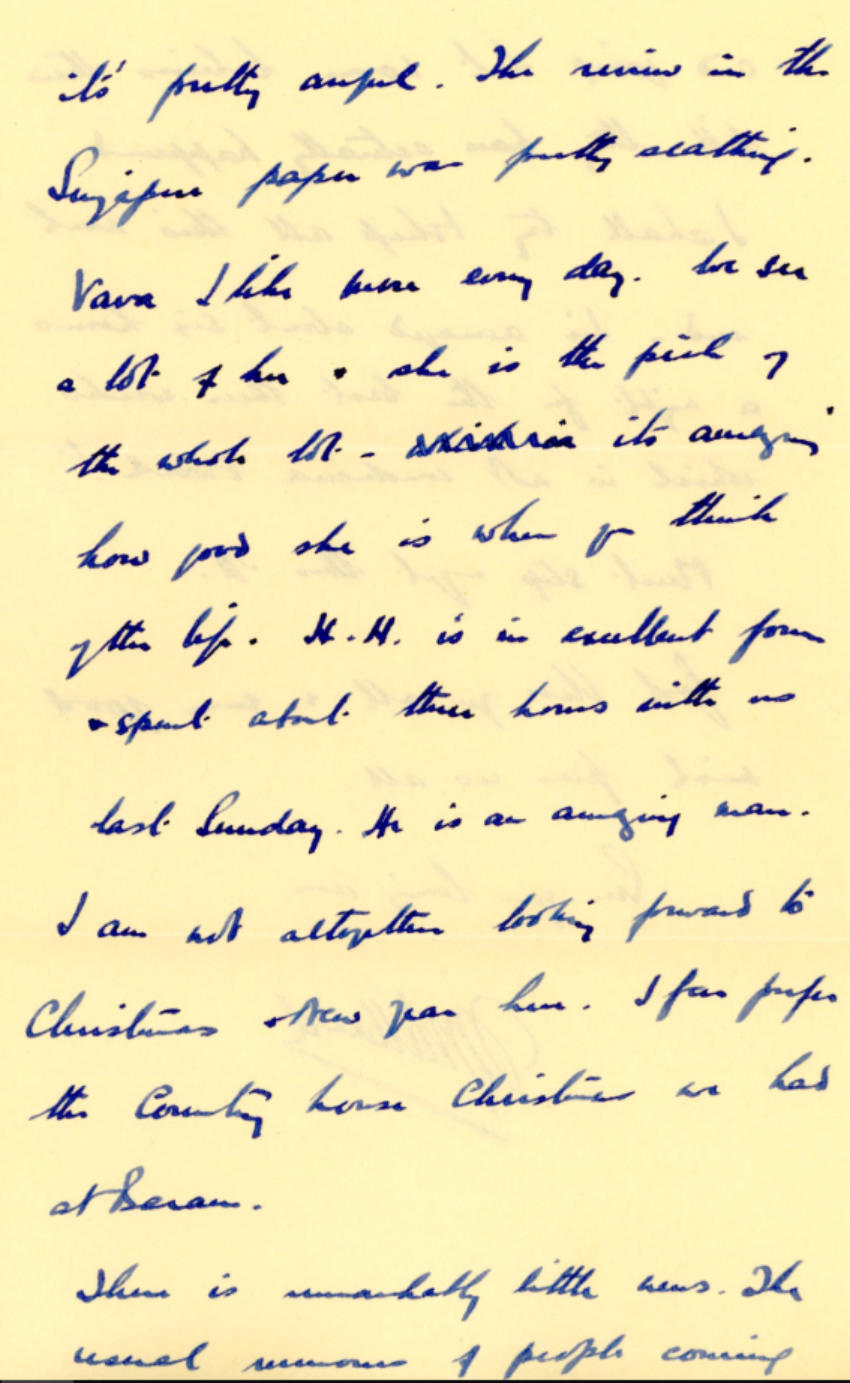 it's pretty awful. The review in the
Singapore paper was pretty scathing.
Vava I like more every day. We see
a lot of her & she is the pick of
the whole lot - its amazing
how good she is when you think
of her life. H.H. is in excellent form
& spent about three hours with us
last Sunday. He is an amazing man.
I am not altogether looking forward to
Christmas & New Year here. I far prefer
the Country house Christmas we had
at Baram.
There is remarkably little news. The
usual rumours of people coming